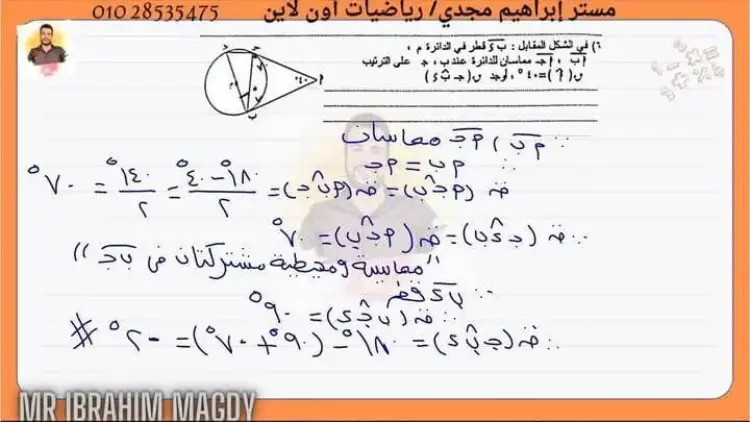 مستر إبراهيم مجدي/ رياضيات أون لاين 010 28535475
٦) في الشكل المقابل : ب د قطر في الدائرة م ،
أ ب ، أ جـ مماسان للدائرة عند ب ، جـ على الترتيب
ق(أ) = ٤٠° ، أوجد ق(جـ ب د)
∵ م ب ، م جـ مماسان
∴ م ب = م جـ
ق (م جـ ب) = ق (م ب جـ) = ١٨٠° - ٤٠° / ٢ = ١٤٠° / ٢ = ٧٠°
∴ ق (جـ د ب) = ق (م جـ ب) = ٧٠°
"مماسية ومحيطية مشتركتان في ب جـ"
∵ ب د قطر
∴ ق (ب جـ د) = ٩٠°
∴ ق (جـ ب د) = ١٨٠ - (٩٠° + ٧٠°) = ٢٠° #
MR IBRAHIM MAGDY